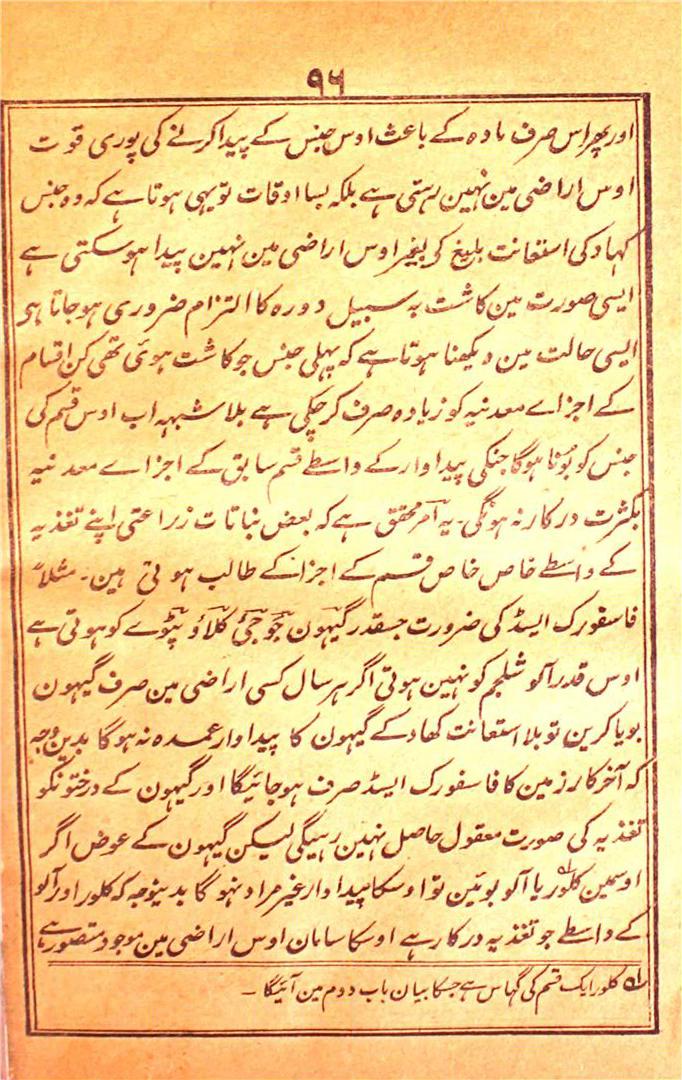 ۹۶
اور پھر اس صرف مادہ کے باعث اوس جنس کے پیدا کرنے کی پوری قوت
اوس اراضی مین نہین رہتی ہے بلکہ بسا اوقات تو یہی ہوتا ہے کہ وہ جنس
کہاد کی استعانت بلیغ کی بغیر اوس اراضی مین نہین پیدا ہوسکتی ہے
ایسی صورت مین کاشت بہ سبیل دورہ کا التزام ضروری ہوجاتا ہی
ایسی حالت مین دیکھنا ہوتا ہے کہ پہلی جنس جو کاشت ہوئی تھی کن اقسام
کے اجزاے معدنیہ کو زیادہ صرف کرچکی ہے بلا شبہہ اب اوس قسم کی
جنس کو بونا ہوگا جنکی پیداوار کے واسطے قسم سابق کے اجزاے معدنیہ
بکثرت درکار نہ ہونگی۔ یہ امر محقق ہے کہ بعض نباتات زراعتی اپنے تغذیہ
کے واسطے خاص خاص قسم کے اجزا کے طالب ہوتی ہین۔ مثلاً
فاسفورک ایسڈ کی ضرورت جسقدر گیہون جو جئی کلاؤ پٹوے کو ہوتی ہے
اوس قدر آلو شلجم کو نہین ہوتی اگر ہر سال کسی اراضی مین صرف گیہون
بویا کرین تو بلا استعانت کھاد کے گیہون کا پیداوار عمدہ نہ ہوگا بدین وجہ
کہ آخرکار زمین کا فاسفورک ایسڈ صرف ہوجائیگا اور گیہون کے درختونکو
تغذیہ کی صورت معقول حاصل نہین رہیگی لیکن گیہون کے عوض اگر
اوسمین کلور۱؎ یا آلو بوئین تو اوسکا پیداوار غیر مراد نہو گا بدینوجہ کہ کلور اور آلو
کے واسطے جو تغذیہ درکار ہے اوسکا سامان اوس اراضی مین موجود متصور ہے
۱؎ کلور ایک قسم کی گہاس ہے جسکا بیان باب دوم مین آئیگا ۔